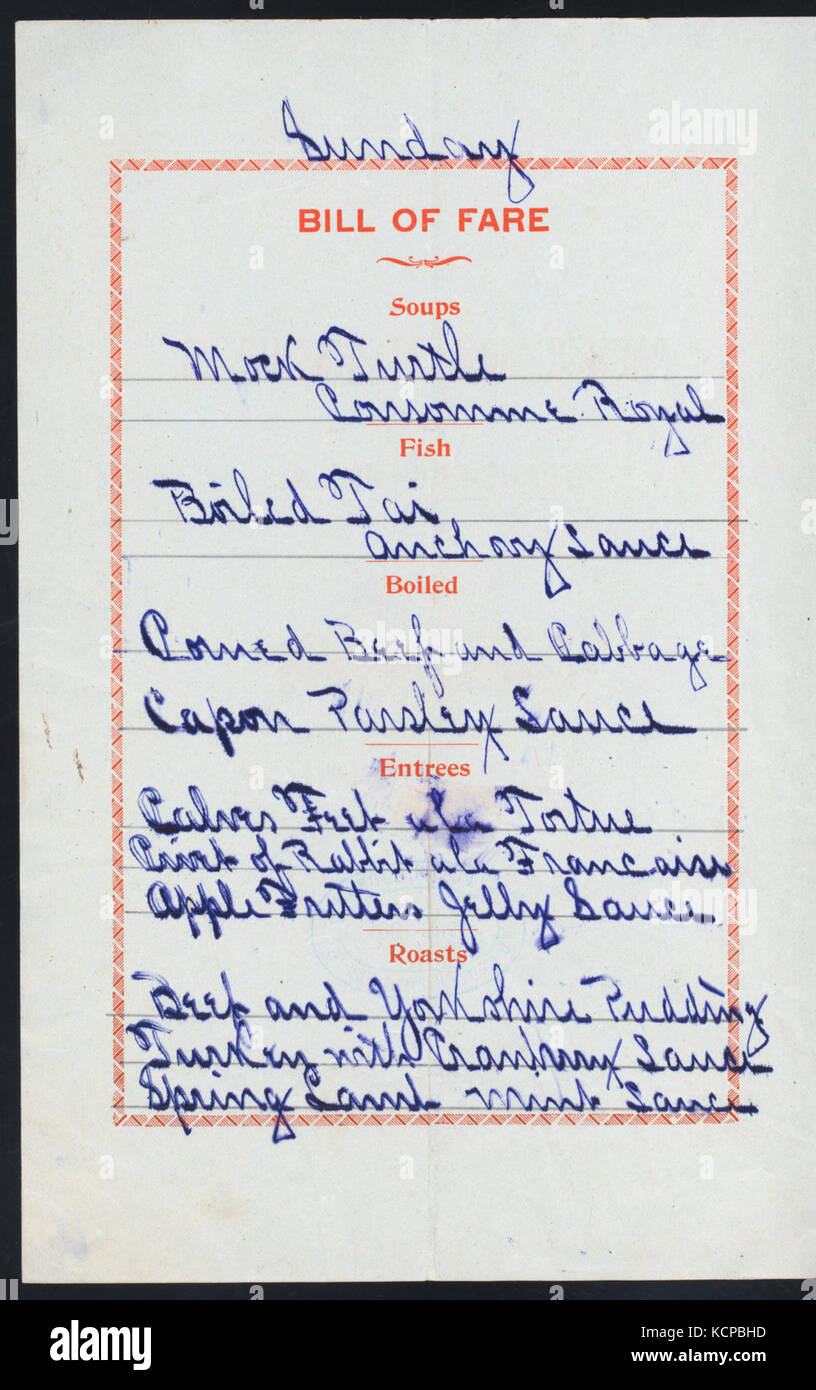 Sunday
BILL OF FARE
Soups
Mock Turtle
Consomme Royal
Fish
Boiled Tai
Anchovy Sauce
Boiled
Corned Beef and Cabbage
Capon Parsley Sauce
Entrees
Calves Feet ala Tortue
Civet of Rabbit ala Francaise
Apple Fritters Jelly Sauce
Roasts
Beef and Yorkshire Pudding
Turkey with Cranberry Sauce
Spring Lamb Mint Sauce
alamy
Image ID: KCPBHD
www.alamy.com